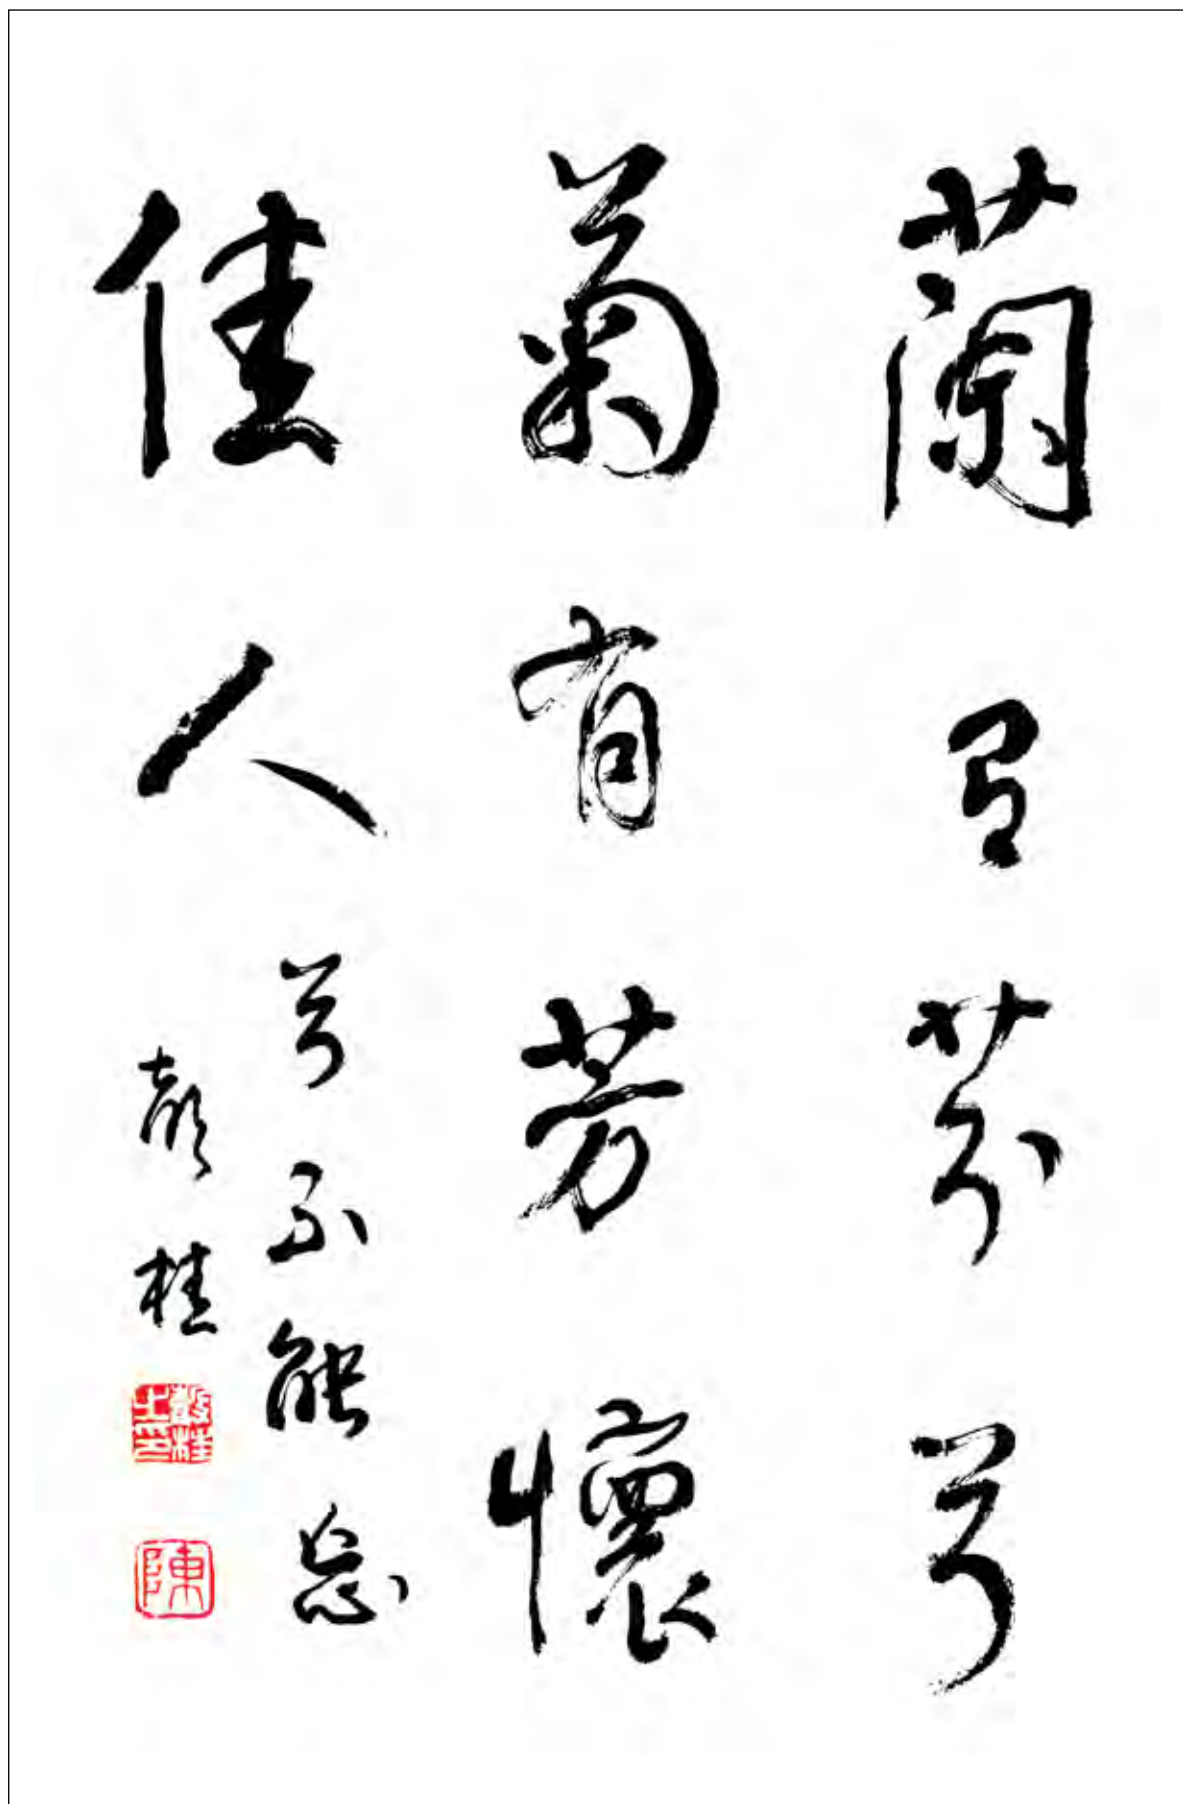 蘭有芬兮
菊有芳懷
佳人
兮不能忘
桂
桂之印
陳